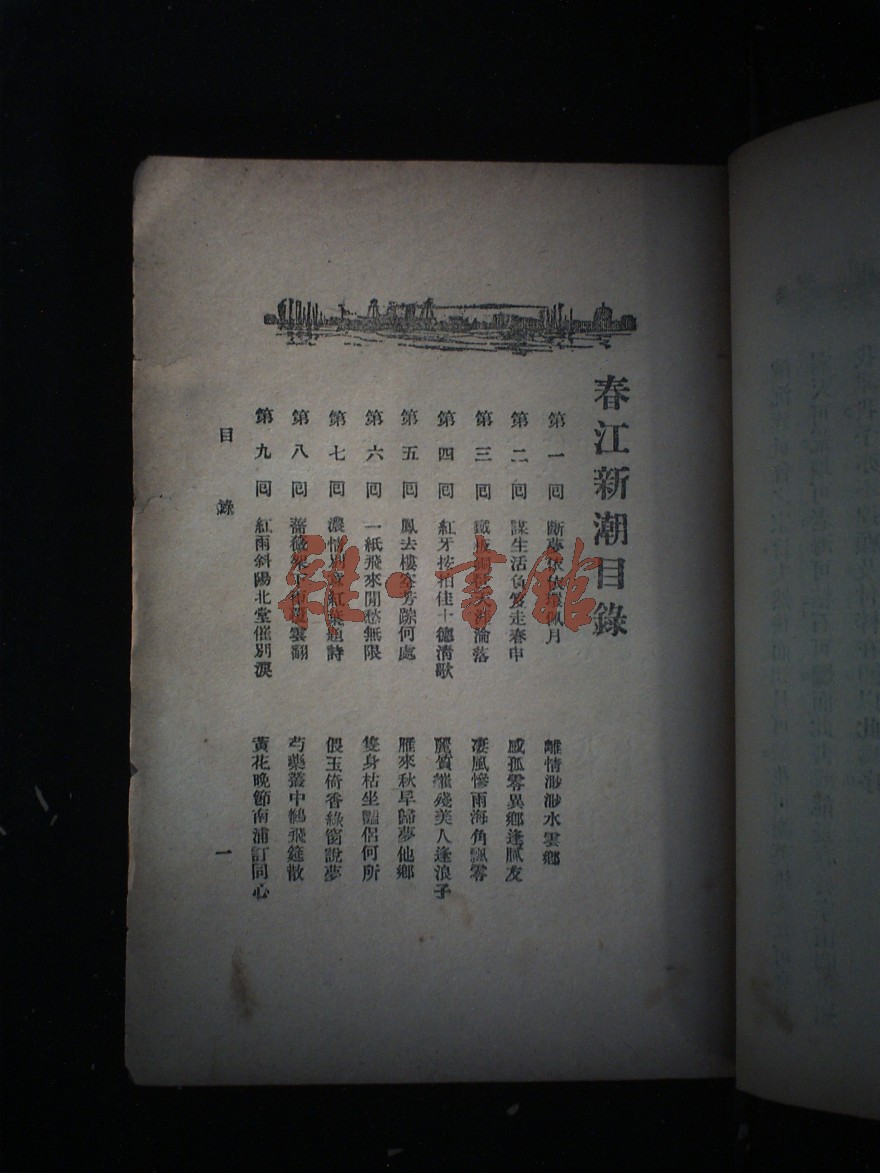 春江新潮目錄
第一回 斷夢依依環佩月 離情渺渺水雲鄉
第二回 謀生活負笈走春申 感孤零異鄉逢膩友
第三回 鐵板銅琶天涯淪落 凄風慘雨海角飄零
第四回 紅牙按拍佳士德清歌 麗質摧殘美人逢浪子
第五回 鳳去樓空芳踪何處 雁來秋早歸夢他鄉
第六回 一紙飛來閒愁無限 隻身枯坐豔侶何所
第七回 濃情別意紅葉題詩 偎玉倚香綠窗說夢
第八回 薔薇架下雲翻 芍藥叢中鶴飛筵散
第九回 紅雨斜陽北堂催別淚 黃花晚節南浦訂同心
目錄
一
雜·書館